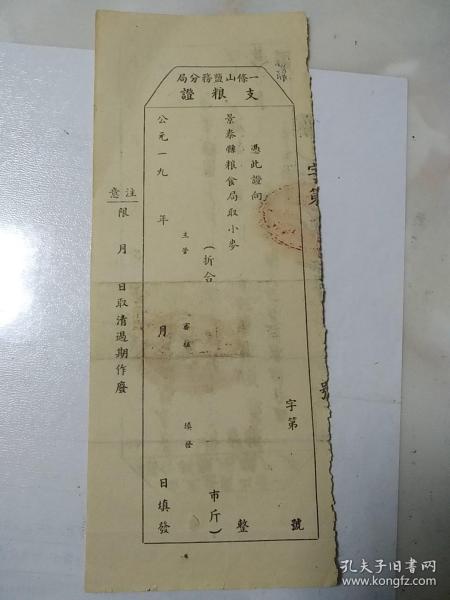 一條山鹽務分局
支糧證
字第　號
憑此證向
景泰縣粮食局取小麥　整
(折合　市斤)
主管　審核　填發
公元一九　年　月　日填發
注意
限　月　日取清過期作廢
字第
號
孔夫子旧书网
www.kongfz.com